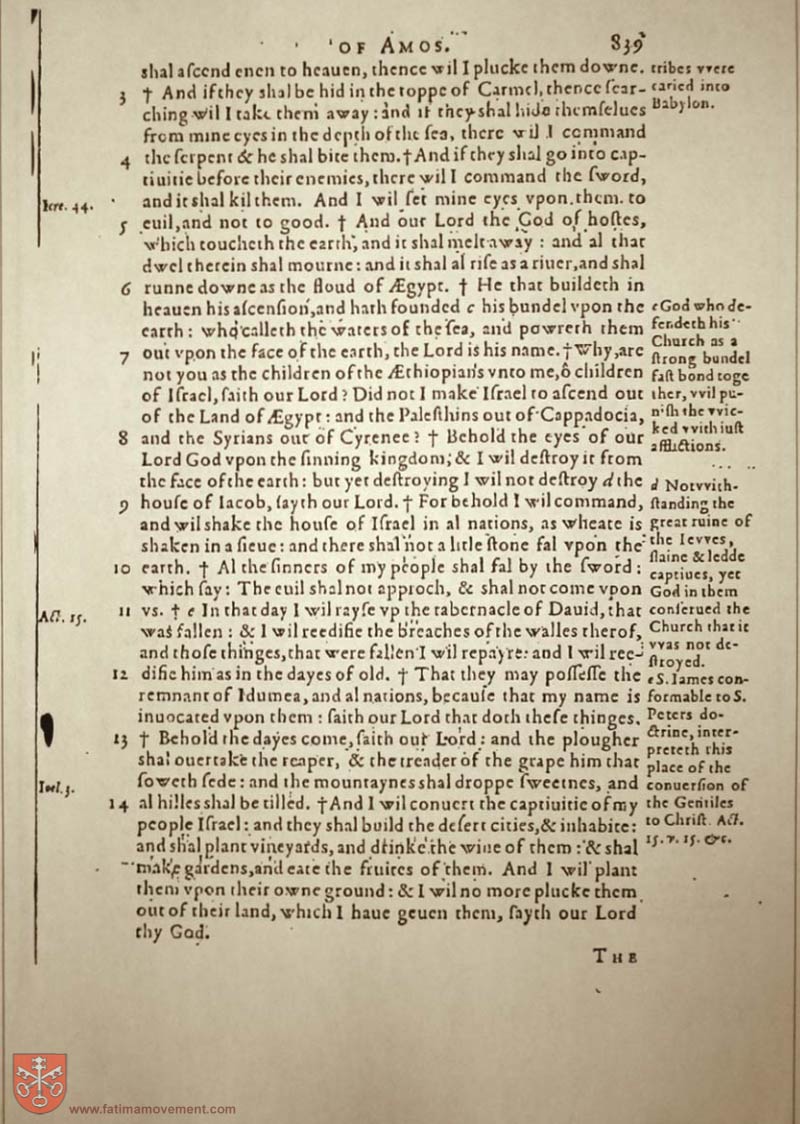 OF AMOS. 839
shal aſcend euen to heauen, thence wil I plucke them downe.
3 † And if they shal be hid in the toppe of Carmel, thence ſear-
ching wil I take them away: and if they shal hide themſelues
from mine eyes in the depth of the ſea, there wil I command
4 the ſerpent & he shal bite them. † And if they shal go into cap-
tiuitie before their enemies, there wil I command the ſword,
Iere. 44. and it shal kil them. And I wil ſet mine eyes vpon them to
5 euil, and not to good. † And our Lord the God of hoſtes,
which toucheth the earth, and it shal melt away: and al that
dwel therein shal mourne: and it shal al riſe as a riuer, and shal
6 runne downe as the floud of Ægypt. † He that buildeth in
heauen his aſcenſion, and hath founded c his bundel vpon the
earth: who calleth the waters of the ſea, and powreth them
7 out vpon the face of the earth, the Lord is his name. † Why, are
not you as the children of the Æthiopians vnto me, ô children
of Iſrael, ſaith our Lord? Did not I make Iſrael to aſcend out
of the Land of Ægypt: and the Paleſthins out of Cappadocia,
8 and the Syrians out of Cyrenee? † Behold the eyes of our
Lord God vpon the ſinning kingdom, & I wil deſtroy it from
the face of the earth: but yet deſtroying I wil not deſtroy d the
9 houſe of Iacob, ſayth our Lord. † For behold I wil command,
and wil shake the houſe of Iſrael in al nations, as wheate is
shaken in a ſieue: and there shal not a litle ſtone fal vpon the
10 earth. † Al the ſinners of my people shal fal by the ſword:
which ſay: The euil shal not approch, & shal not come vpon
Act. 15. 11 vs. † e In that day I wil rayſe vp the tabernacle of Dauid, that
was fallen: & I wil reedifie the breaches of the walles therof,
and thoſe thinges, that were fallen I wil repayre: and I wil ree-
12 difie him as in the dayes of old. † That they may poſſeſſe the
remnant of Idumea, and al nations, becauſe that my name is
inuocated vpon them: ſaith our Lord that doth theſe thinges.
13 † Behold the dayes come, ſaith our Lord: and the plougher
shal ouertake the reaper, & the treader of the grape him that
Ioel. 3. ſoweth ſede: and the mountaynes shal droppe ſweetnes, and
14 al hilles shal be tilled. † And I wil conuert the captiuitie of my
people Iſrael: and they shal build the deſert cities, & inhabite:
and shal plant vineyards, and drinke the wine of them: & shal
make gardens, and eate the fruites of them. And I wil plant
them vpon their owne ground: & I wil no more plucke them
out of their land, which I haue geuen them, ſayth our Lord
thy God.
THE
tribes vvere
caried into
Babylon.
c God who de-
fendeth his
Church as a
ſtrong bundel
faſt bond toge
ther, vvil pu-
niſh the vvic-
ked vvith iuſt
afflictions.
d Notvvith-
ſtanding the
great ruine of
the Ievves,
ſlaine & ledde
captiues, yet
God in them
conſerued the
Church that it
vvas not de-
ſtroyed.
e S. Iames con-
formable to S.
Peters do-
ctrine, inter-
preteth this
place of the
conuerſion of
the Gentiles
to Chriſt. Act.
15. v. 15. &c.
www.fatimamovement.com